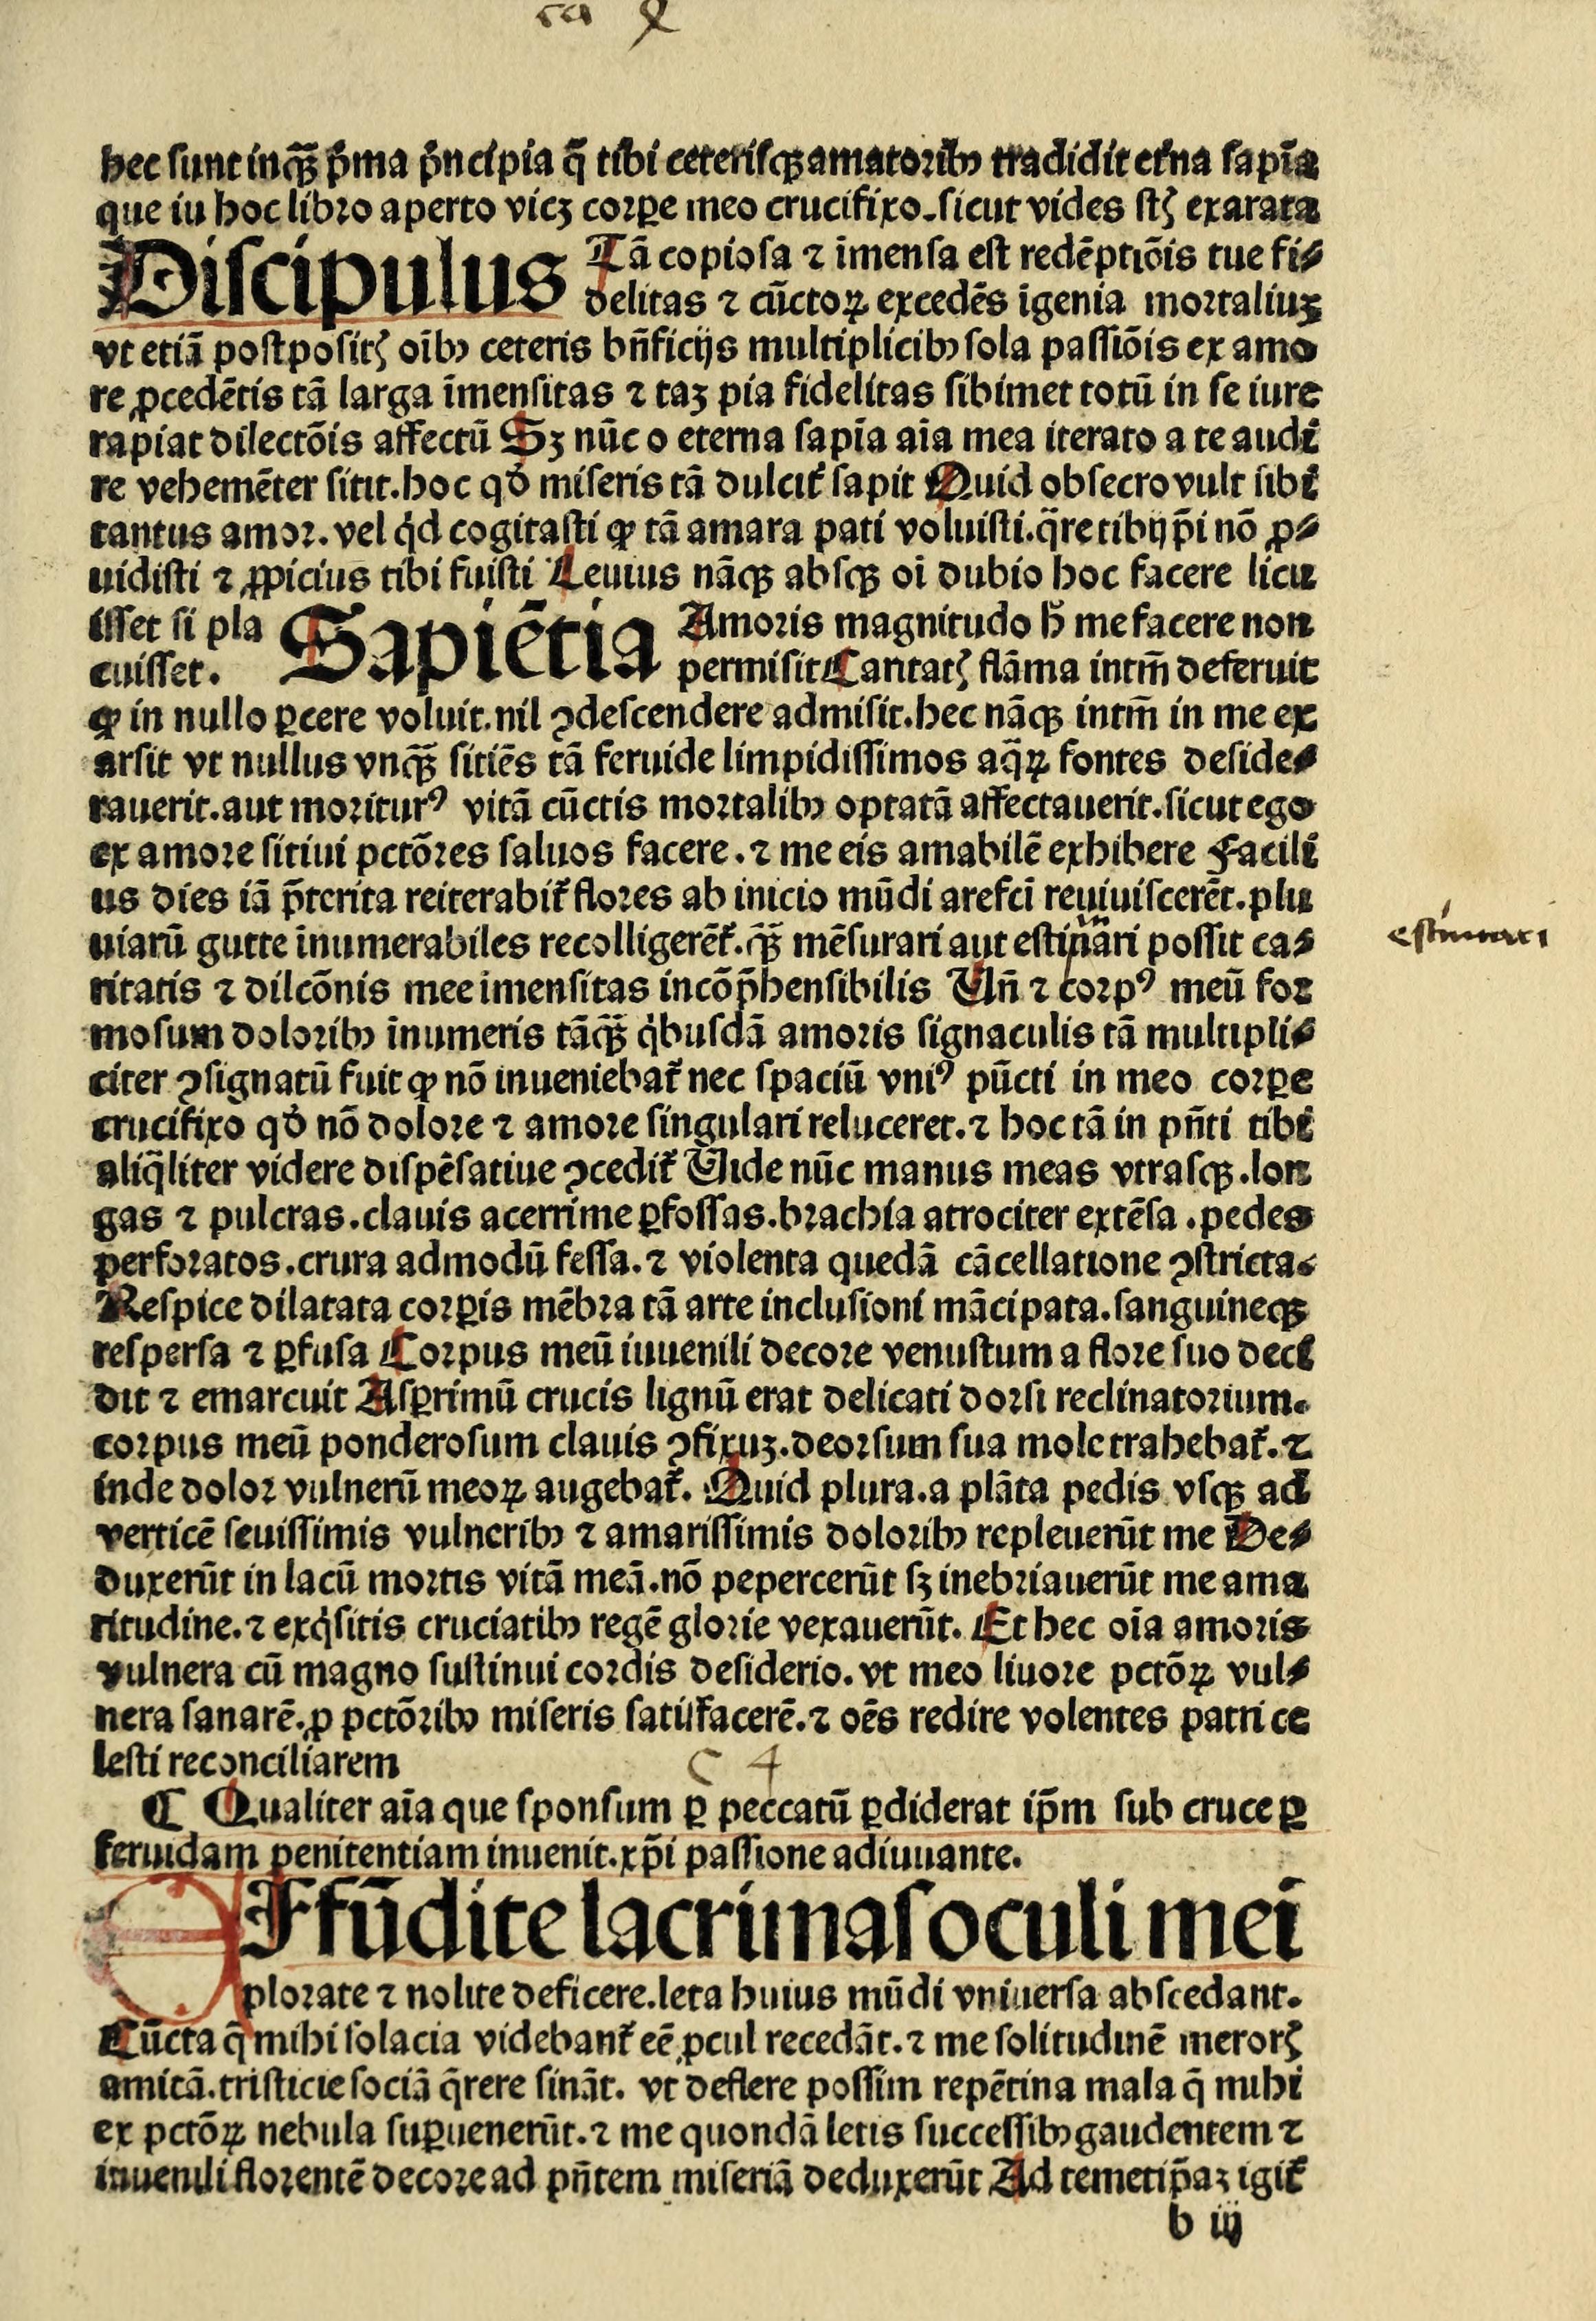 ca x
hec sunt inqꝫ̄ p̄ma p̄ncipia q̄ tibi ceterisqꝫ amatoribꝰ tradidit et̄na sapīa
que iu hoc libro aperto vicꝫ corꝑe meo crucifixo. sicut vides stꝭ exarata
Discipulus Tā copiosa ⁊ īmensa est redēptiōis tue fi⸗
delitas ⁊ cūctoꝝ excedēs īgenia mortaliuꝫ
vt etiā postpositꝭ oībꝰ ceteris bn̄ficijs multiplicibꝰ sola passiōis ex amo
re ꝓcedētis tā larga īmensitas ⁊ taꝫ pia fidelitas sibimet totū in se iure
rapiat dilectōis affectū Sꝫ nūc o eterna sapīa aīa mea iterato a te audi
re vehemēter sitit. hoc qđ miseris tā dulcit̄ sapit Quid obsecro vult sibi
tantus amor. vel qͥd cogitasti ꝙ tā amara pati voluisti. q̄re tibijp̄i nō ꝓ⸗
uidisti ⁊ ꝓpicius tibi fuisti Leuius nāqꝫ absqꝫ oī dubio hoc facere licu
isset si pla Sapiētia Amoris magnitudo ħ me facere non
cuisset. permisit Caritatꝭ flāma intm̄ deferuit
ꝙ in nullo ꝑcere voluit. nil ꝯdescendere admisit. hec nāqꝫ intm̄ in me ex
arsit vt nullus vnqꝫ̄ sitiēs tā feruide limpidissimos aq̄ꝝ fontes deside⸗
rauerit. aut moriturꝰ vitā cūctis mortalibꝰ optatā affectauerit. sicut ego
ex amore sitiui pctōres saluos facere. ⁊ me eis amabilē exhibere Facili
us dies iā p̄terita reiterabit̄ flores ab inicio mūdi arefci reuiuiscerēt. plu
uiarū gutte īnumerabiles recolligerēt̄. qꝫ̄ mēsurari aut estinari possit ca⸗
estimari
ritatis ⁊ dilcōnis mee imensitas incōp̄hensibilis Vn̄ ⁊ corpꝰ meū for
mosum doloribꝰ īnumeris tāqꝫ̄ qͥbusdā amoris signaculis tā multipli⸗
citer ꝯsignatū fuit ꝙ nō inueniebat̄ nec spaciū vniꝰ pūcti in meo corꝑe
crucifixo qđ nō dolore ⁊ amore singulari reluceret. ⁊ hoc tā in pn̄ti tibi
aliq̄liter videre dispēsatiue ꝯcedit̄ Vide nūc manus meas vtrasqꝫ. lon
gas ⁊ pulcras. clauis acerrime ꝑfossas. brachia atrociter extēsa. pedes
perforatos. crura admodū fessa. ⁊ violenta quedā cācellatione ꝯstricta.
Respice dilatata corꝑis mēbra tā arte inclusioni mācipata. sanguineqꝫ
respersa ⁊ ꝑfusa Corpus meū iuuenili decore venustum a flore suo deci
dit ⁊ emarcuit Asꝑrimū crucis lignū erat delicati dorsi reclinatorium.
corpus meū ponderosum clauis ꝯfixuꝫ. deorsum sua mole trahebat̄. ⁊
inde dolor vulnerū meoꝝ augebat̄. Quid plura. a plāta pedis vsqꝫ ad
verticē seuissimis vulneribꝰ ⁊ amarissimis doloribꝰ repleuerūt me De⸗
duxerūt in lacū mortis vitā meā. nō pepercerūt sꝫ inebriauerūt me ama
ritudine. ⁊ exqͥsitis cruciatibꝰ regē glorie vexauerūt. Et hec oīa amoris
vulnera cū magno sustinui cordis desiderio. vt meo liuore pctōꝝ vul⸗
nera sanarē. ꝓ pctōribꝰ miseris satisfacerē. ⁊ oēs redire volentes patri ce
lesti reconciliarem
C 4
¶ Qualiter aīa que sponsum ꝑ peccatū ꝑdiderat ip̄m sub cruce ꝑ
feruidam penitentiam inuenit. xp̄i passione adiuuante.
EFfūdite lacrimas oculi mei
plorate ⁊ nolite deficere. leta huius mūdi vniuersa abscedant.
Cūcta q̄ mihi solacia videbant̄ eē ꝓcul recedāt. ⁊ me solitudinē merorꝭ
amicā. tristicie sociā q̄rere sināt. vt deflere possim repētina mala q̄ mihi
ex pctōꝝ nebula suꝑuenerūt. ⁊ me quondā letis successibꝰ gaudentem ⁊
iuuenili florentē decore ad pn̄tem miseriā deduxerūt Ad temetip̄aꝫ igit̄
b iij